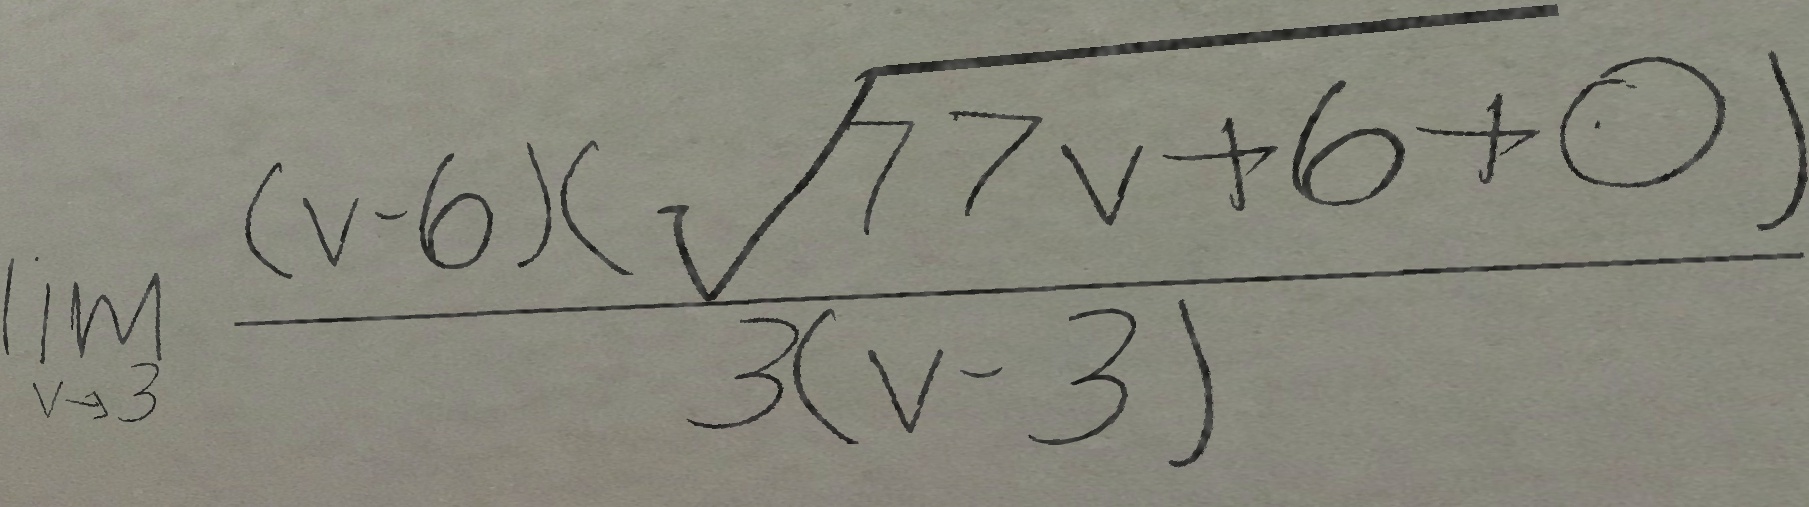 \lim_{v \to 3} \frac{(v-6)(\sqrt{77v+6+0})}{3(v-3)}